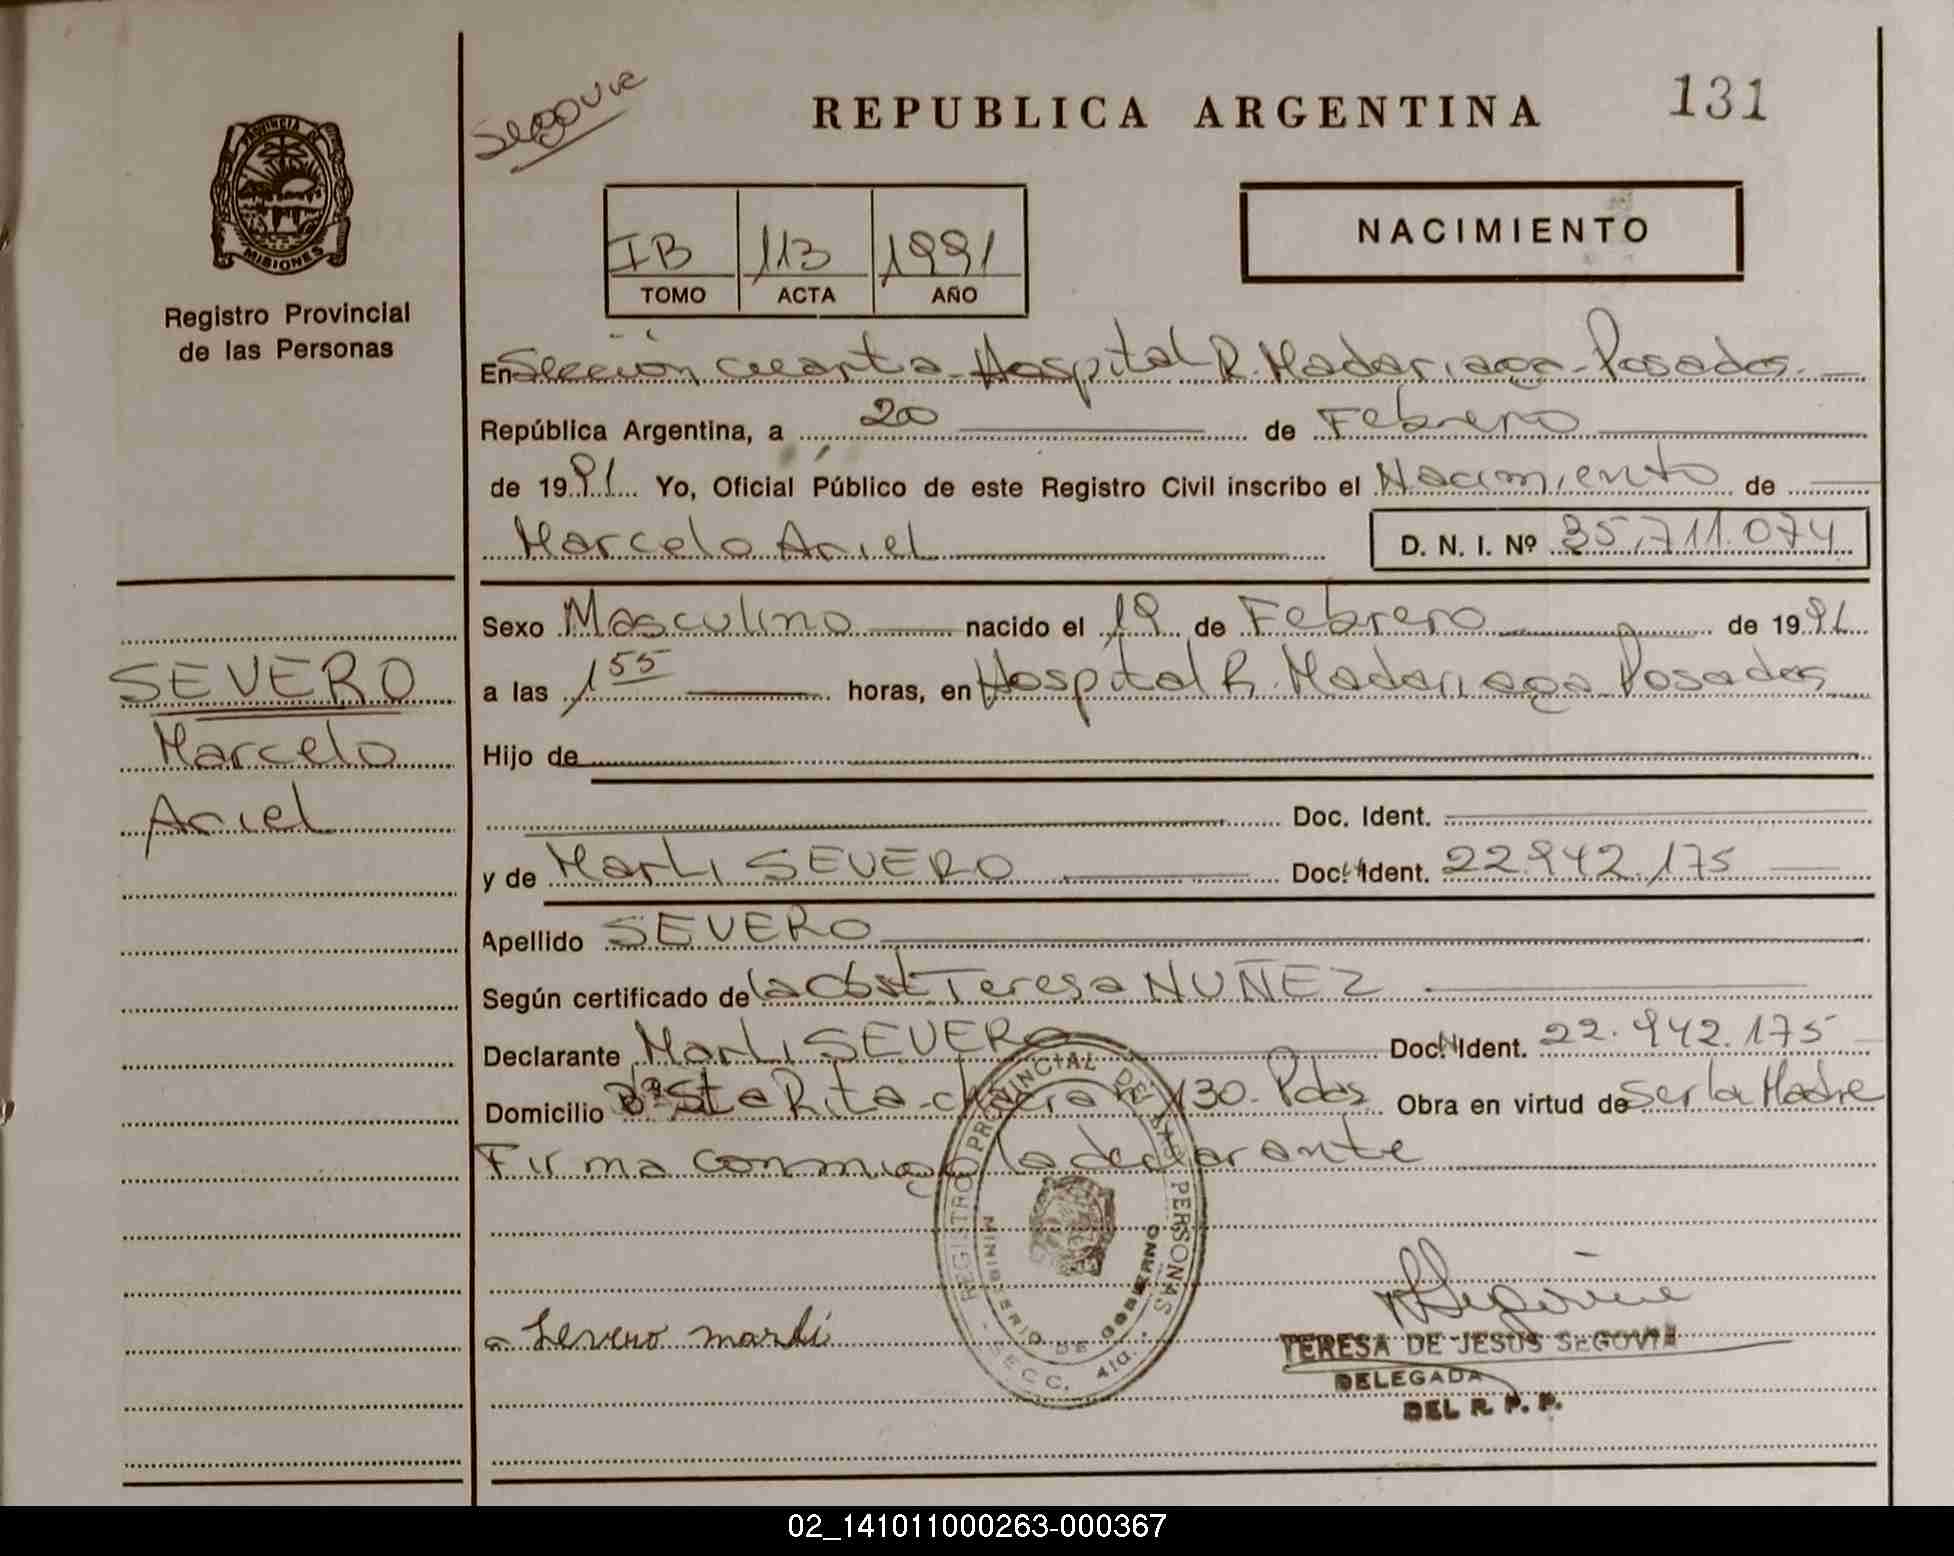 Segovia
REPUBLICA ARGENTINA
131
PROVINCIA DE
MISIONES
Registro Provincial
de las Personas
IB 113 1991
TOMO ACTA AÑO
NACIMIENTO
En Sección cuarta-Hospital R. Madariaga-Posadas.
República Argentina, a 20 de Febrero
de 1991 Yo, Oficial Público de este Registro Civil inscribo el Nacimiento de
Marcelo Ariel D. N. I. Nº 35.711.074
Sexo Masculino nacido el 19 de Febrero de 1991
SEVERO
Marcelo
Ariel
a las 1 55 horas, en Hospital R. Madariaga Posadas
Hijo de
Doc. Ident.
y de Marli SEVERO Doc. Ident. 22.942.175
Apellido SEVERO
Según certificado de la Obst Teresa NUÑEZ
Declarante Marli SEVERO Doc. Ident. 22.942.175
Domicilio Bº Sta Rita-chacra Nº 130-Pdas Obra en virtud de Ser la Madre
Firma conmigo la declarante
REGISTRO PROVINCIAL DE LAS PERSONAS
MINISTERIO DE GOBIERNO
SECC. 4ta.
Severo marli
Segovia
TERESA DE JESUS SEGOVIA
DELEGADA
DEL R. P. P.
02_141011000263-000367